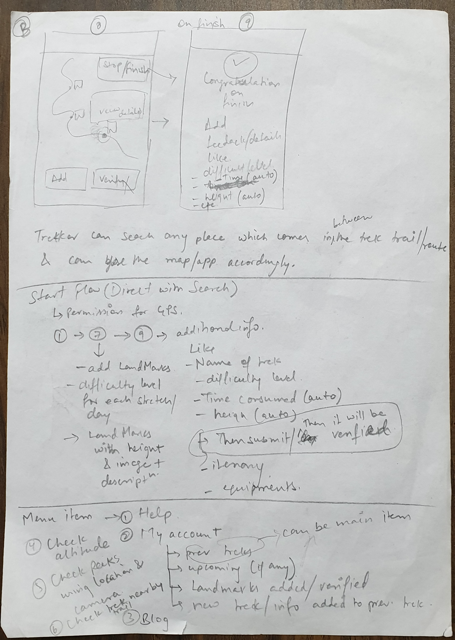 B
8
On finish 9
Stop/finish
Congratulation
on
finish
view details
Add
feedback/details
Like
difficulty level
- Time (auto)
- height (auto)
- etc
Add
Verify
between
Trekker can seach any place which comes in the trek trail/route
& can use the map/app accordingly.
Start flow (Direct with Search)
↳ Permission for GPS.
1 → 2 → 9 → additional info.
Like
- add LandMarks
- difficulty level
for each stretch/
day
→ LandMarks
with height
& image +
descriptn.
- Name of trek
- difficulty level
- Time consumed (auto)
- heigh (auto)
Then it will be
→ Then submit/ verified
- itenary
- equipments.
Menu item → 1 Help
2 My account
→ can be main item
→ prev treks
→ upcoming (if any)
→ Landmarks added/verified
→ new track/info added to prev. trek.
3 Blog
4 Check
altitude
5 Check peaks
using location &
camera
6 Check trek nearby
trail